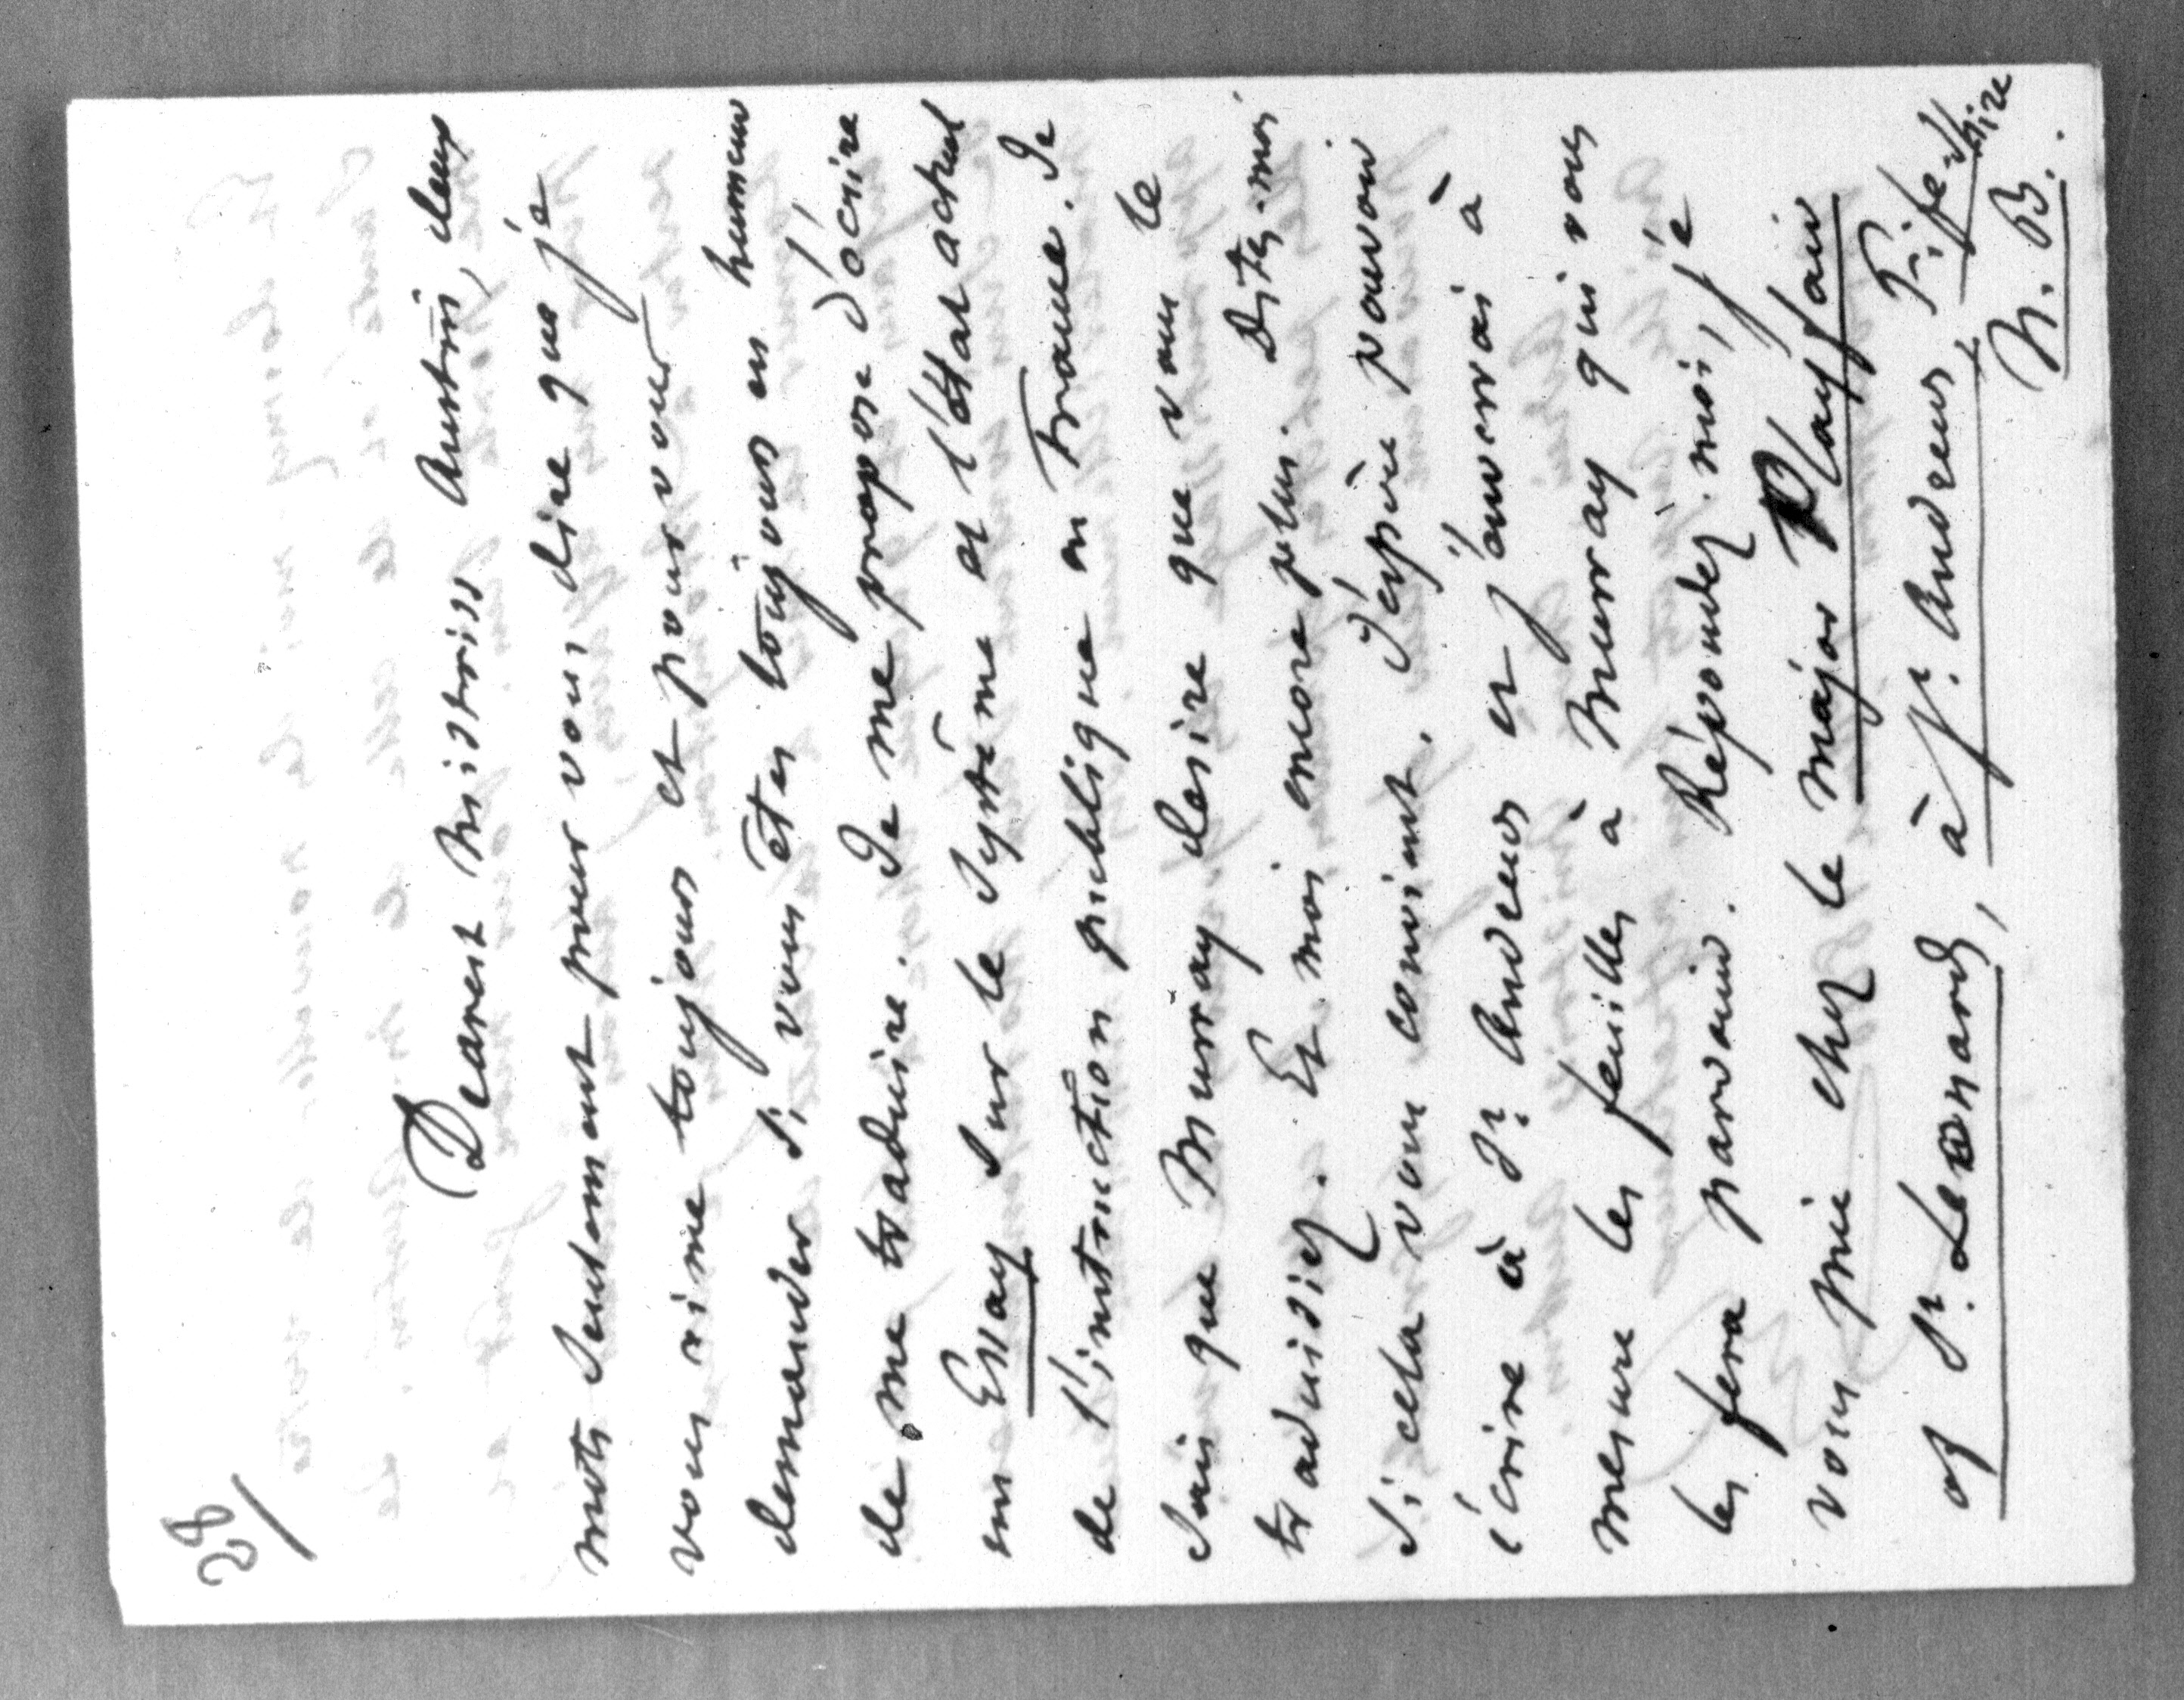 28/
Dearest Mistriss Austin, deux
mots seulement pour vous dire que je
vous aime toujours et pour vous
demander si vous êtes toujours en humeur
de me traduire. Je me propose d'écrire
un Essay sur le système et l'état actuel
de l'instruction publique en France. Je
sais que Murray desire que vous le
traduisiez. Et moi encore plus. Dites-moi
si cela vous convient. J'espère pouvoir
écrire à St. Andrews et j'enverrai à
mesure les feuilles à Murray qui vous
les fera parvenir. Répondez-moi, je
vous prie chez le major Playfair
of St. Leonards, à St. Andrews, Fifeshire
N. B.